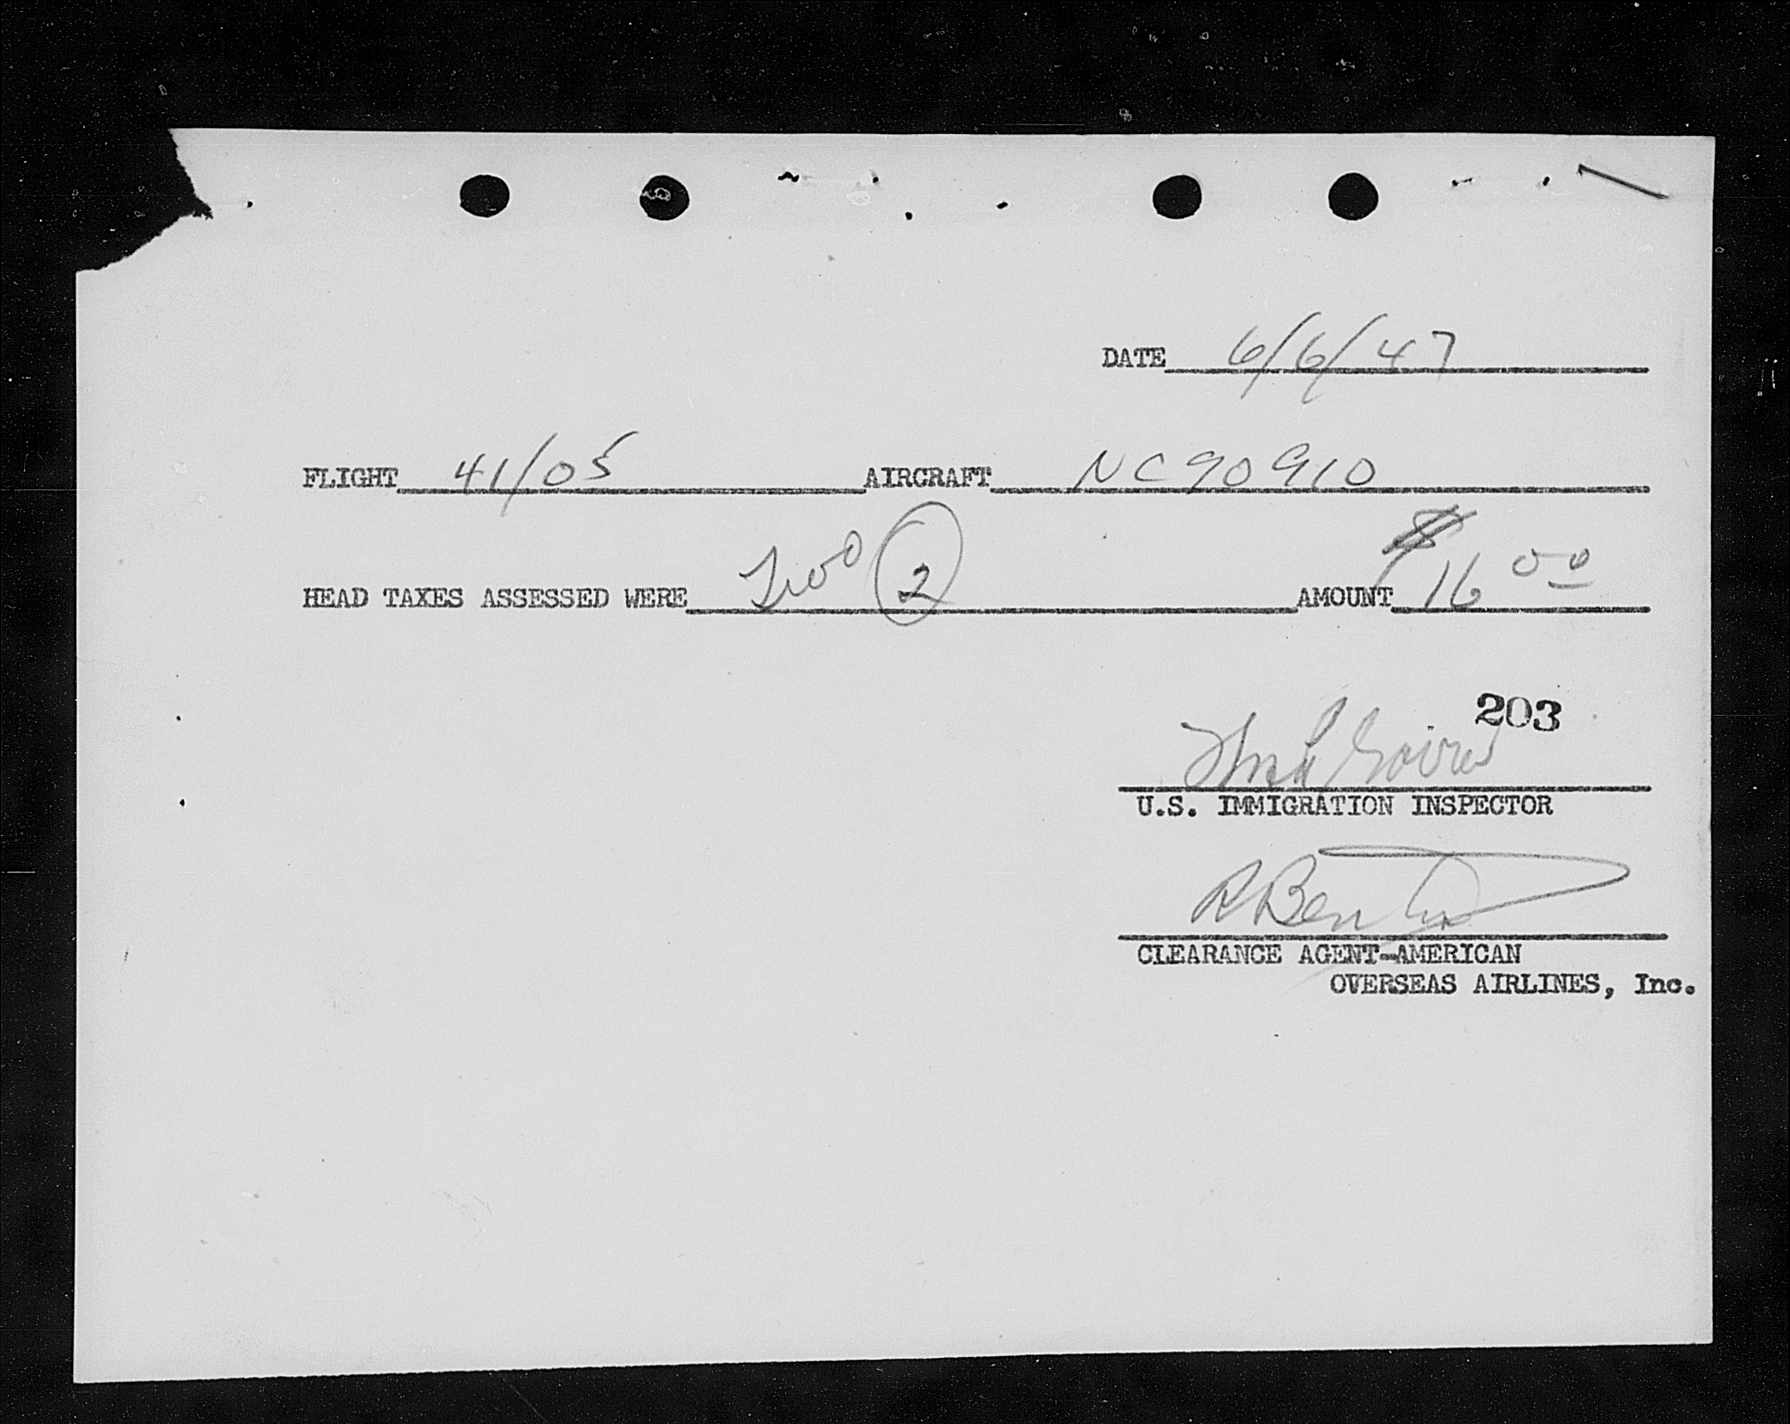 DATE 6/6/47
FLIGHT 41/05 AIRCRAFT NC90910
HEAD TAXES ASSESSED WERE Two (2) AMOUNT $16 00
203
U.S. IMMIGRATION INSPECTOR
CLEARANCE AGENT-AMERICAN
OVERSEAS AIRLINES, Inc.